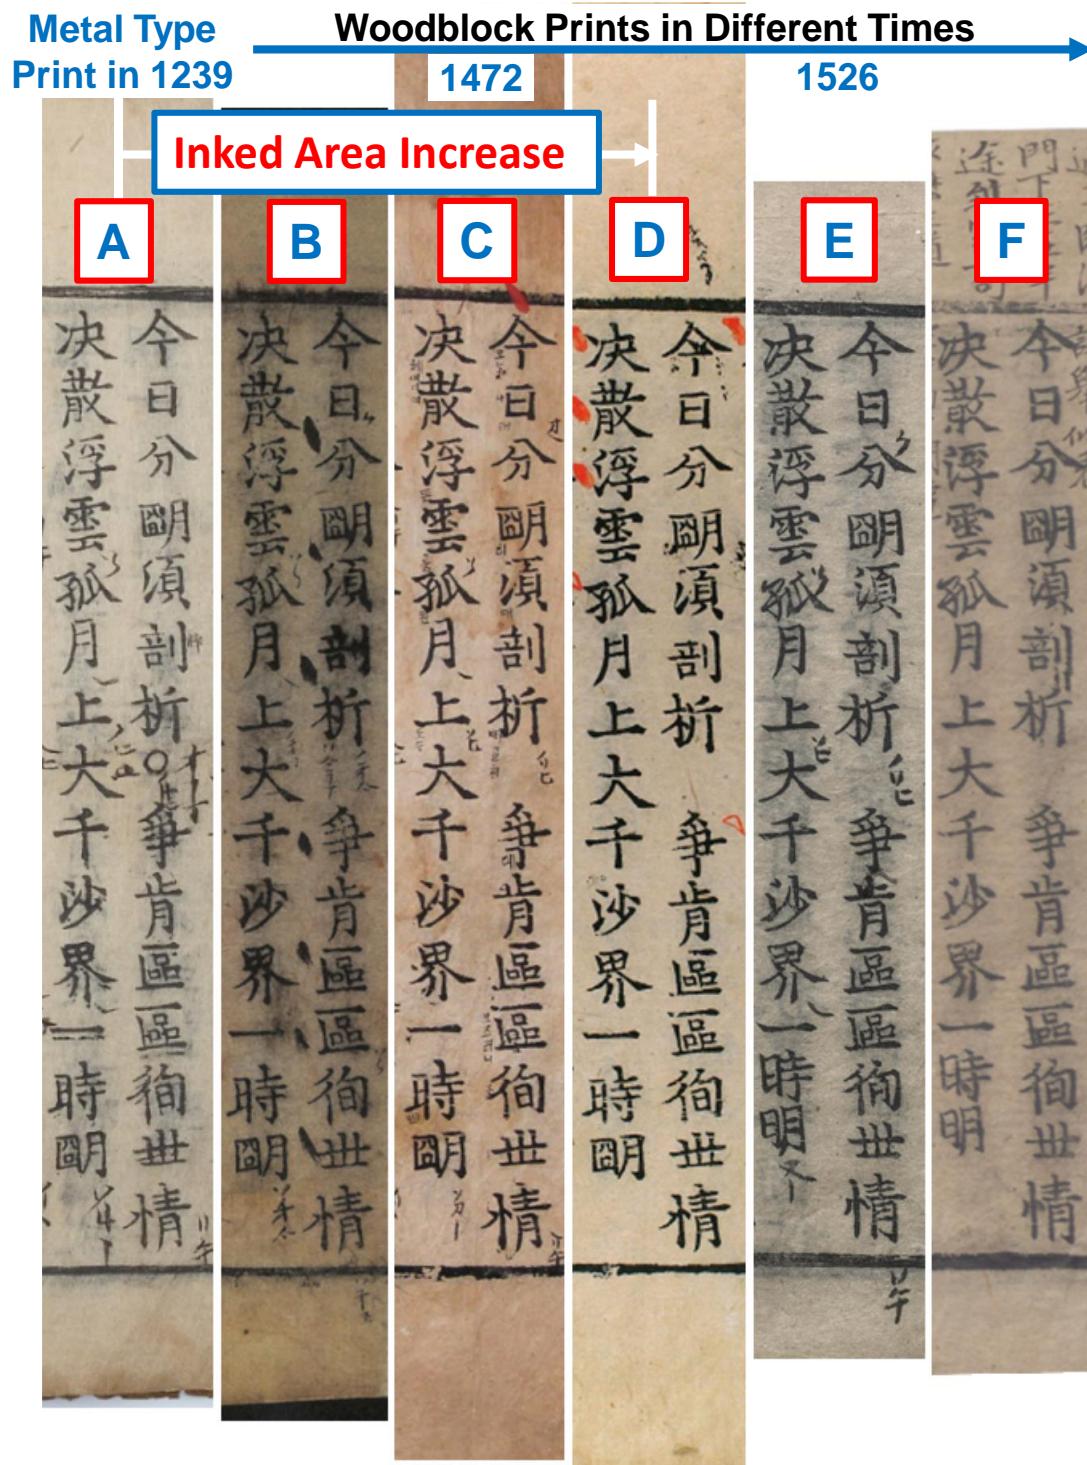 Metal Type
Print in 1239
Woodblock Prints in Different Times
1472
1526
Inked Area Increase
A
B
C
D
E
F
今日分朙湏剖析○爭肯區區徇世情
决散浮雲孤月上大千沙界一時朙
今日分朙湏剖析 爭肯區區徇世情
决散浮雲孤月上大千沙界一時朙
今日分朙湏剖析 爭肯區區徇世情
决散浮雲孤月上大千沙界一時朙
今日分朙湏剖析 爭肯區區徇世情
决散浮雲孤月上大千沙界一時朙
今日分朙湏剖析 爭肯區區徇世情
决散浮雲孤月上大千沙界一時明
今日分朙湏剖析 爭肯區區徇世情
决散浮雲孤月上大千沙界一時明